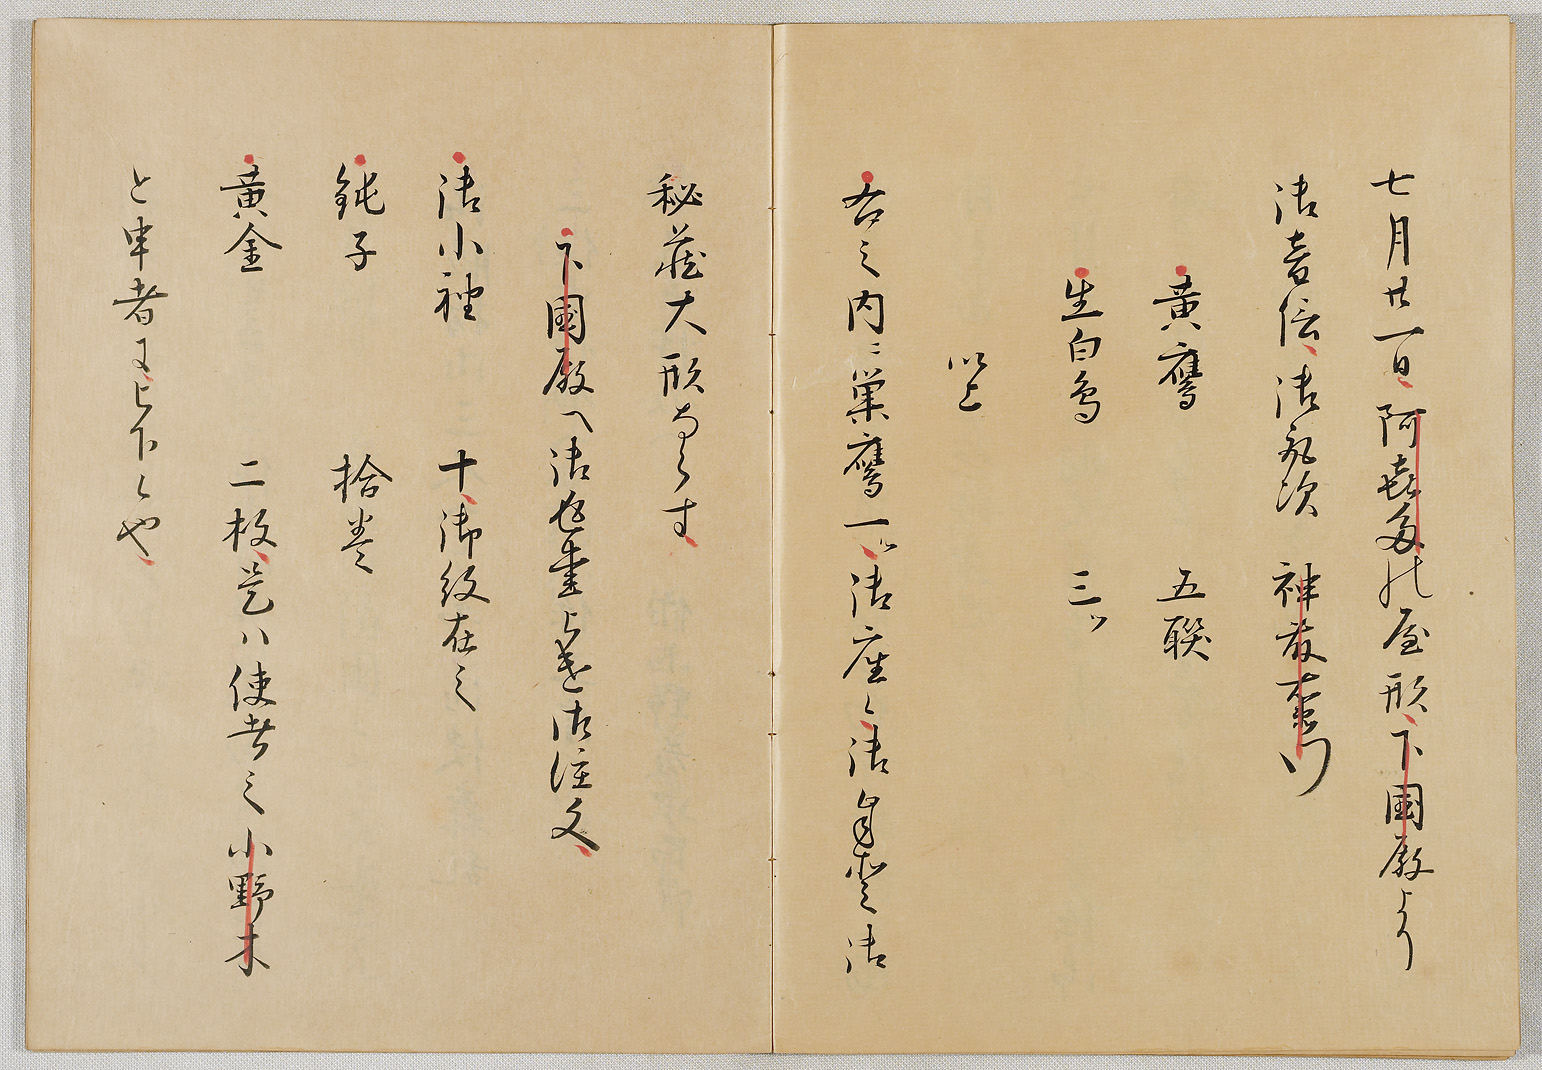 七月廿一日阿喜多の屋形下國殿より
御音信御執次神藤右衛門
黄鷹　五聯
生白鳥　三ツ
以上
右之内ニ巣鷹一ツ御座候御自愛御
秘蔵大形ならす
下國殿へ御返書被遣御注文
御小袖　十御紋在之
鈍子　拾巻
黄金　二枚是ハ使者之小野木
と申者に被下候や